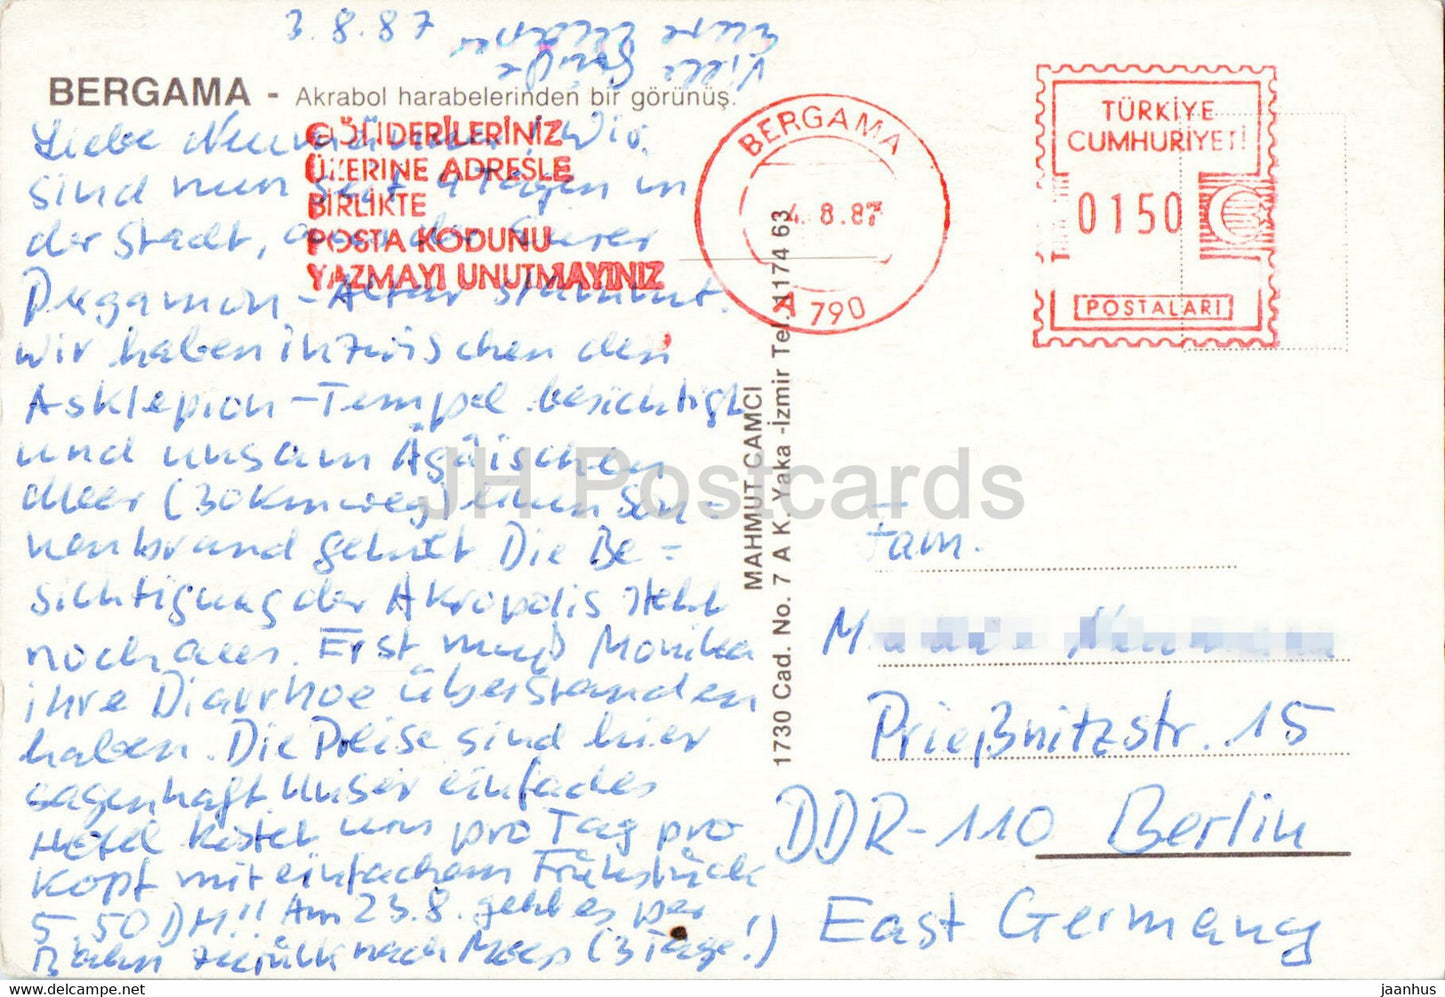 3.8.87
Viele Grüße
Eure
BERGAMA - Akrabol harabelerinden bir görünüş.
GÖNDERİLERİNİZ
ÜZERİNE ADRESLE
BİRLİKTE
POSTA KODUNU
YAZMAYI UNUTMAYINIZ
BERGAMA
4.8.87
A 790
TÜRKİYE
CUMHURİYETİ
0150
POSTALARI
Liebe Neumänner! Wir
sind nun seit 4 Tagen in
der Stadt, aus der Eurer
Pergamon-Altar stammt.
Wir haben inzwischen den
Asklepion-Tempel besichtigt
und uns am Ägäischen
Meer (30km weg) einen Son-
nenbrand geholt Die Be=
sichtigung der Akropolis steht
noch aus. Erst muß Monika
ihre Diarrhoe überstanden
haben. Die Preise sind hier
sagenhaft. Unser einfaches
Hotel kostet uns pro Tag pro
Kopf mit einfachem Frühstück
5,50 DM!! Am 23.8. geht es per
Bahn zurück nach (3 Tage!)
MAHMUT CAMCI
1730 Cad. No. 7 A K. Yaka -İzmir Tel. 1174 63
Fam.
Prießnitzstr. 15
DDR-110 Berlin
East Germany
JH Postcards
https://www.hippostcard.com/store/jaanhus-e-pood
jaanhus